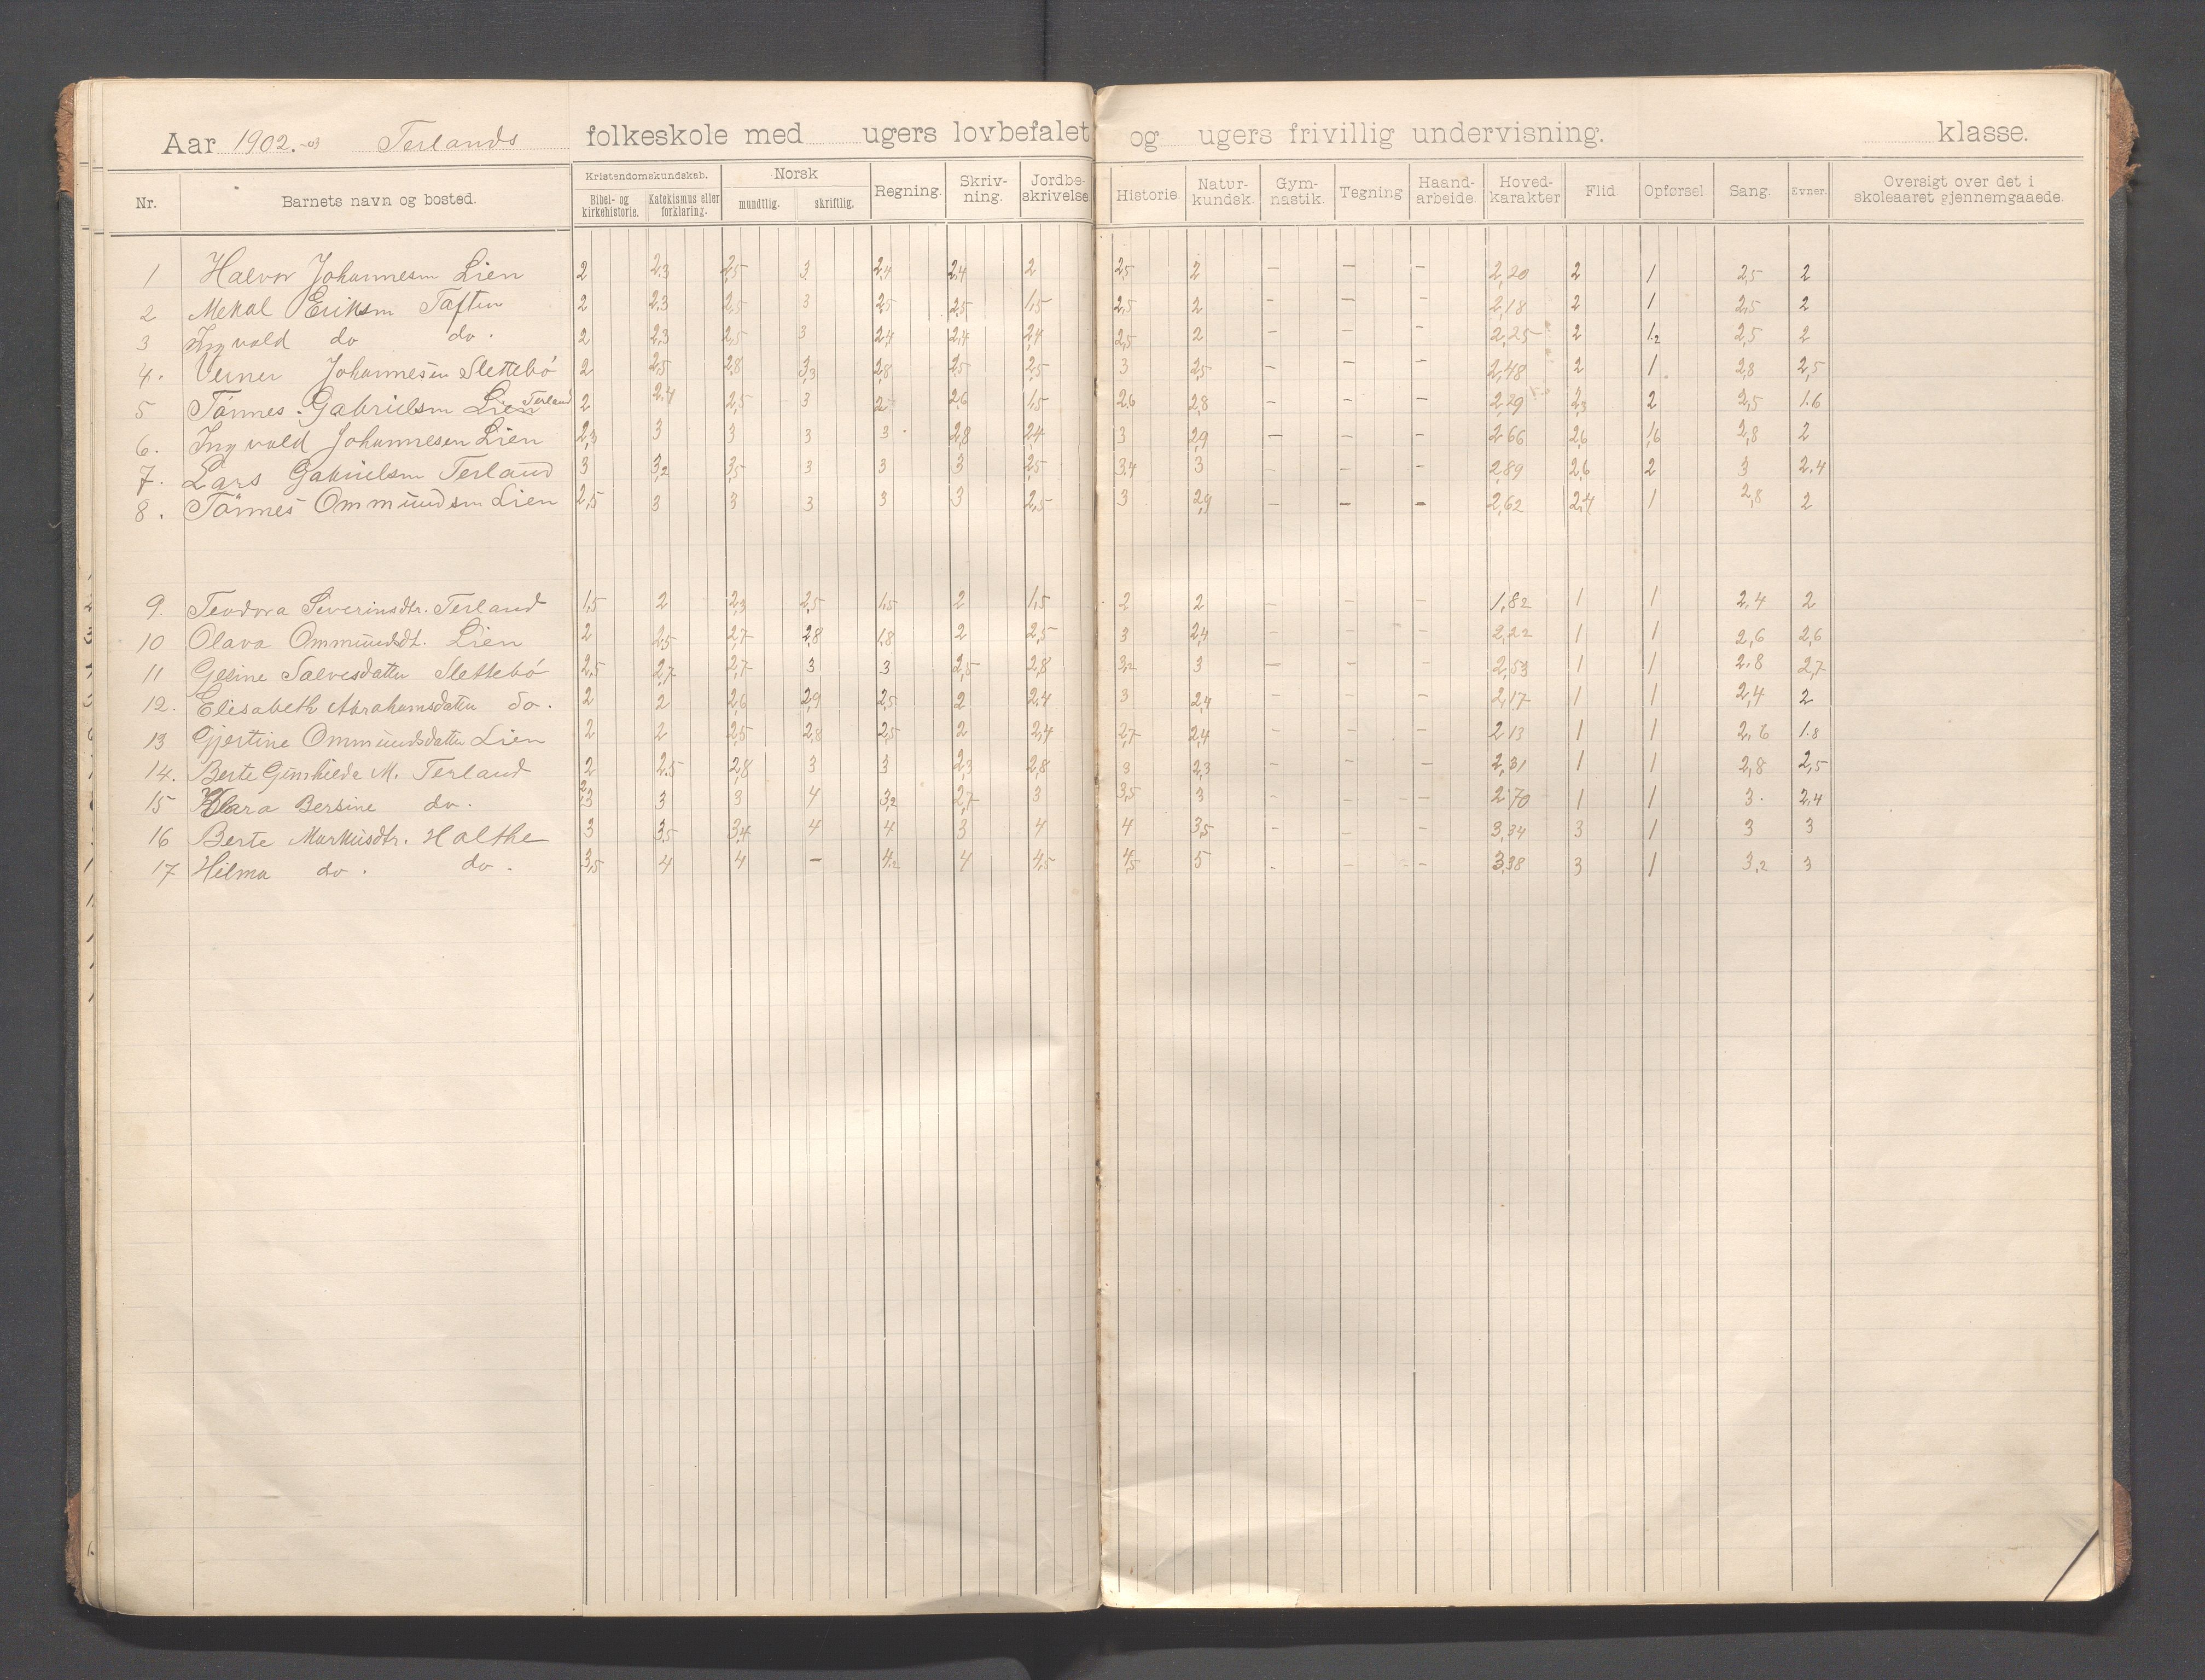 Aar 1902.-03 Terlands folkeskole med ugers lovbefalet og ugers frivillig undervisning. klasse.
Nr. Barnets navn og bosted. Kristendomskundskab. Bibel- og kirkehistorie. Katekismus eller forklaring. Norsk mundtlig. skriftlig. Regning. Skriv-ning. Jordbe-skrivelse Historie. Natur-kundsk. Gym-nastik. Tegning Haand-arbeide. Hoved-karakter Flid Opførsel Sang. Evner. Oversigt over det i skoleaaret gjennemgaaede.
1 Halvor Johannesen Lien 2 2,3 2,5 3 2,4 2,4 2 2,5 2 – – – 2,20 2 1 2,5 2
2 Mekal Eriksen Taften 2 2,3 2,5 3 2,5 2,5 1,5 2,5 2 – – – 2,18 2 1 2,5 2
3 Ingvald do do. 2 2,3 2,5 3 2,4 2,4 2,4 2,5 2 – – – 2,25 2 1,2 2,5 2
4. Verner Johannesen Slettebö 2 2,5 2,8 3,3 2,8 2,5 2,5 3 2,5 – – – 2,48 2 1 2,8 2,5
5 Tönnes Gabrielsen Lien Terland 2 2,4 2,5 3 2 2,6 1,5 2,6 2,8 – – – 2,29 2,3 2 2,5 1.6
6. Ingvald Johannesen Lien 2,3 3 3 3 3 2,8 2,4 3 2,9 – – – 2,66 2,6 1,6 2,8 2
7. Lars Gabrielsen Terland 3 3,2 3,5 3 3 3 2,5 3,4 3 – – – 2,89 2,6 2 3 2.4
8. Tönnes Ommundsen Lien 2,5 3 3 3 3 3 2,5 3 2,9 – – – 2,62 2,4 1 2,8 2
9. Teodora Siverinsdtr. Terland 1,5 2 2,3 2,5 1,5 2 1,5 2 2 – – – 1,82 1 1 2,4 2
10 Olava Ommundsdt. Lien 2 2,5 2,7 2,8 1,8 2 2,5 3 2,4 – – – 2,22 1 1 2,6 2,6
11 Gesine Salvesdatter Slettebö 2,5 2,7 2,7 3 3 2,5 2,8 3,2 3 – – – 2,53 1 1 2.8 2,7
12. Elisabeth Abrahamsdatter do. 2 2 2,6 2,9 2,5 2 2,4 3 2,4 – – – 2,17 1 1 2,4 2
13 Gjertine Ommundsdatter Lien 2 2 2,5 2,8 2,5 2 2,4 2,7 2,4 – – – 2 13 1 1 2,6 1.8
14. Berte Gunhilde M. Terland 2 2.5 2,8 3 3 2,3 2,8 3 2,3 – – – 2,31 1 1 2,8 2,5
15 Klara Bersine do. 2,3 3 3 4 3,2 2,7 3 3,5 3 – – – 2 70 1 1 3. 2.4
16 Berte Markusdtr. Halthe 3 3,5 3,4 4 4 3 4 4 3,5 – – – 3,34 3 1 3 3
17 Hilma do. do. 3,5 4 4 – 4,2 4 4,5 4,5 5 – – – 3,38 3 1 3,2 3